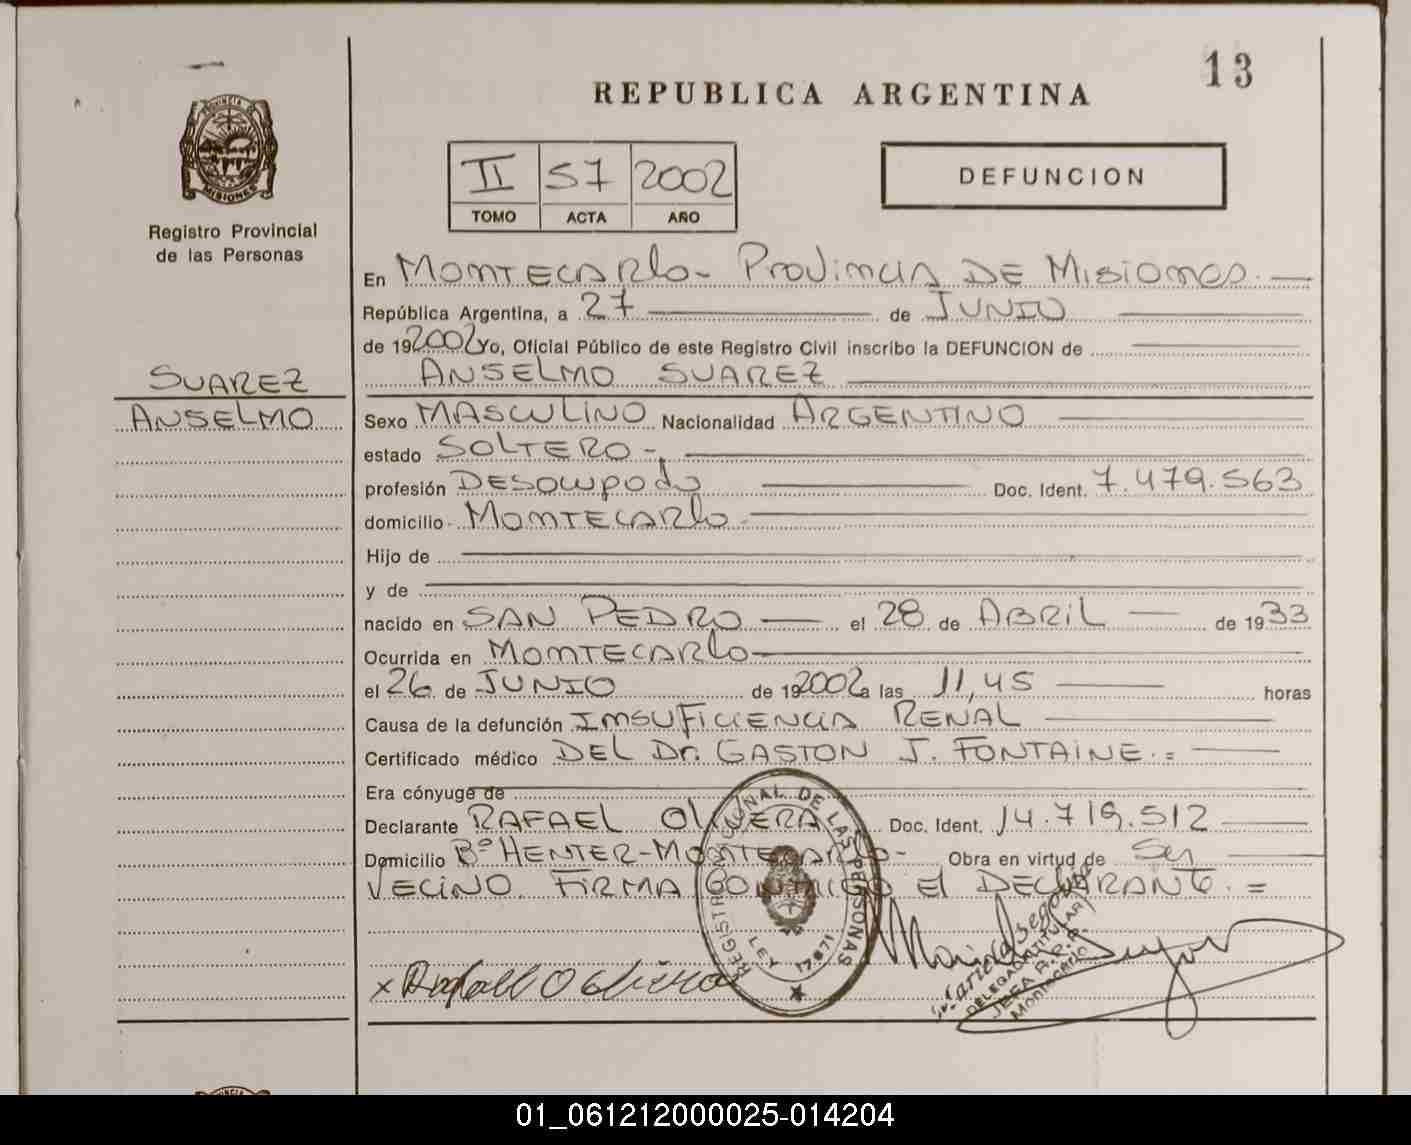 13
REPUBLICA ARGENTINA
PROVINCIA DE
MISIONES
Registro Provincial
de las Personas
II 57 2002
TOMO ACTA AÑO
DEFUNCION
SUAREZ
ANSELMO
En MONTECARlo- ProvinciA DE Misiones.
República Argentina, a 27 de JUNIO
de 192002 Yo, Oficial Público de este Registro Civil inscribo la DEFUNCION de
ANSELMO SUAREZ
Sexo MASCULINO Nacionalidad ARGENTINO
estado SOLTERO-
profesión DESOCUPADO Doc. Ident. 7.479.563
domicilio MONTECARlo-
Hijo de
y de
nacido en SAN PEDRO el 28 de ABRIL de 1933
Ocurrida en MONTECARlo
el 26 de JUNIO de 192002 a las 11,45 horas
Causa de la defunción INSUFICIENCIA RENAL
Certificado médico DEL Dr. GASTON J. FONTAINE.=
Era cónyuge de
Declarante RAFAEL OliVERA Doc. Ident. 14.719.512
Domicilio Bº HENTER-MONTECARlo- Obra en virtud de Ser
VECINO. FIRMA CONMIGO El DECLARANTE.=
REGISTRO NACIONAL DE LAS PERSONAS
LEY 17.671
x Rafael Olivera
DELEGADA TITULAR
JEFA R.P.P.
Montecarlo
01_061212000025-014204